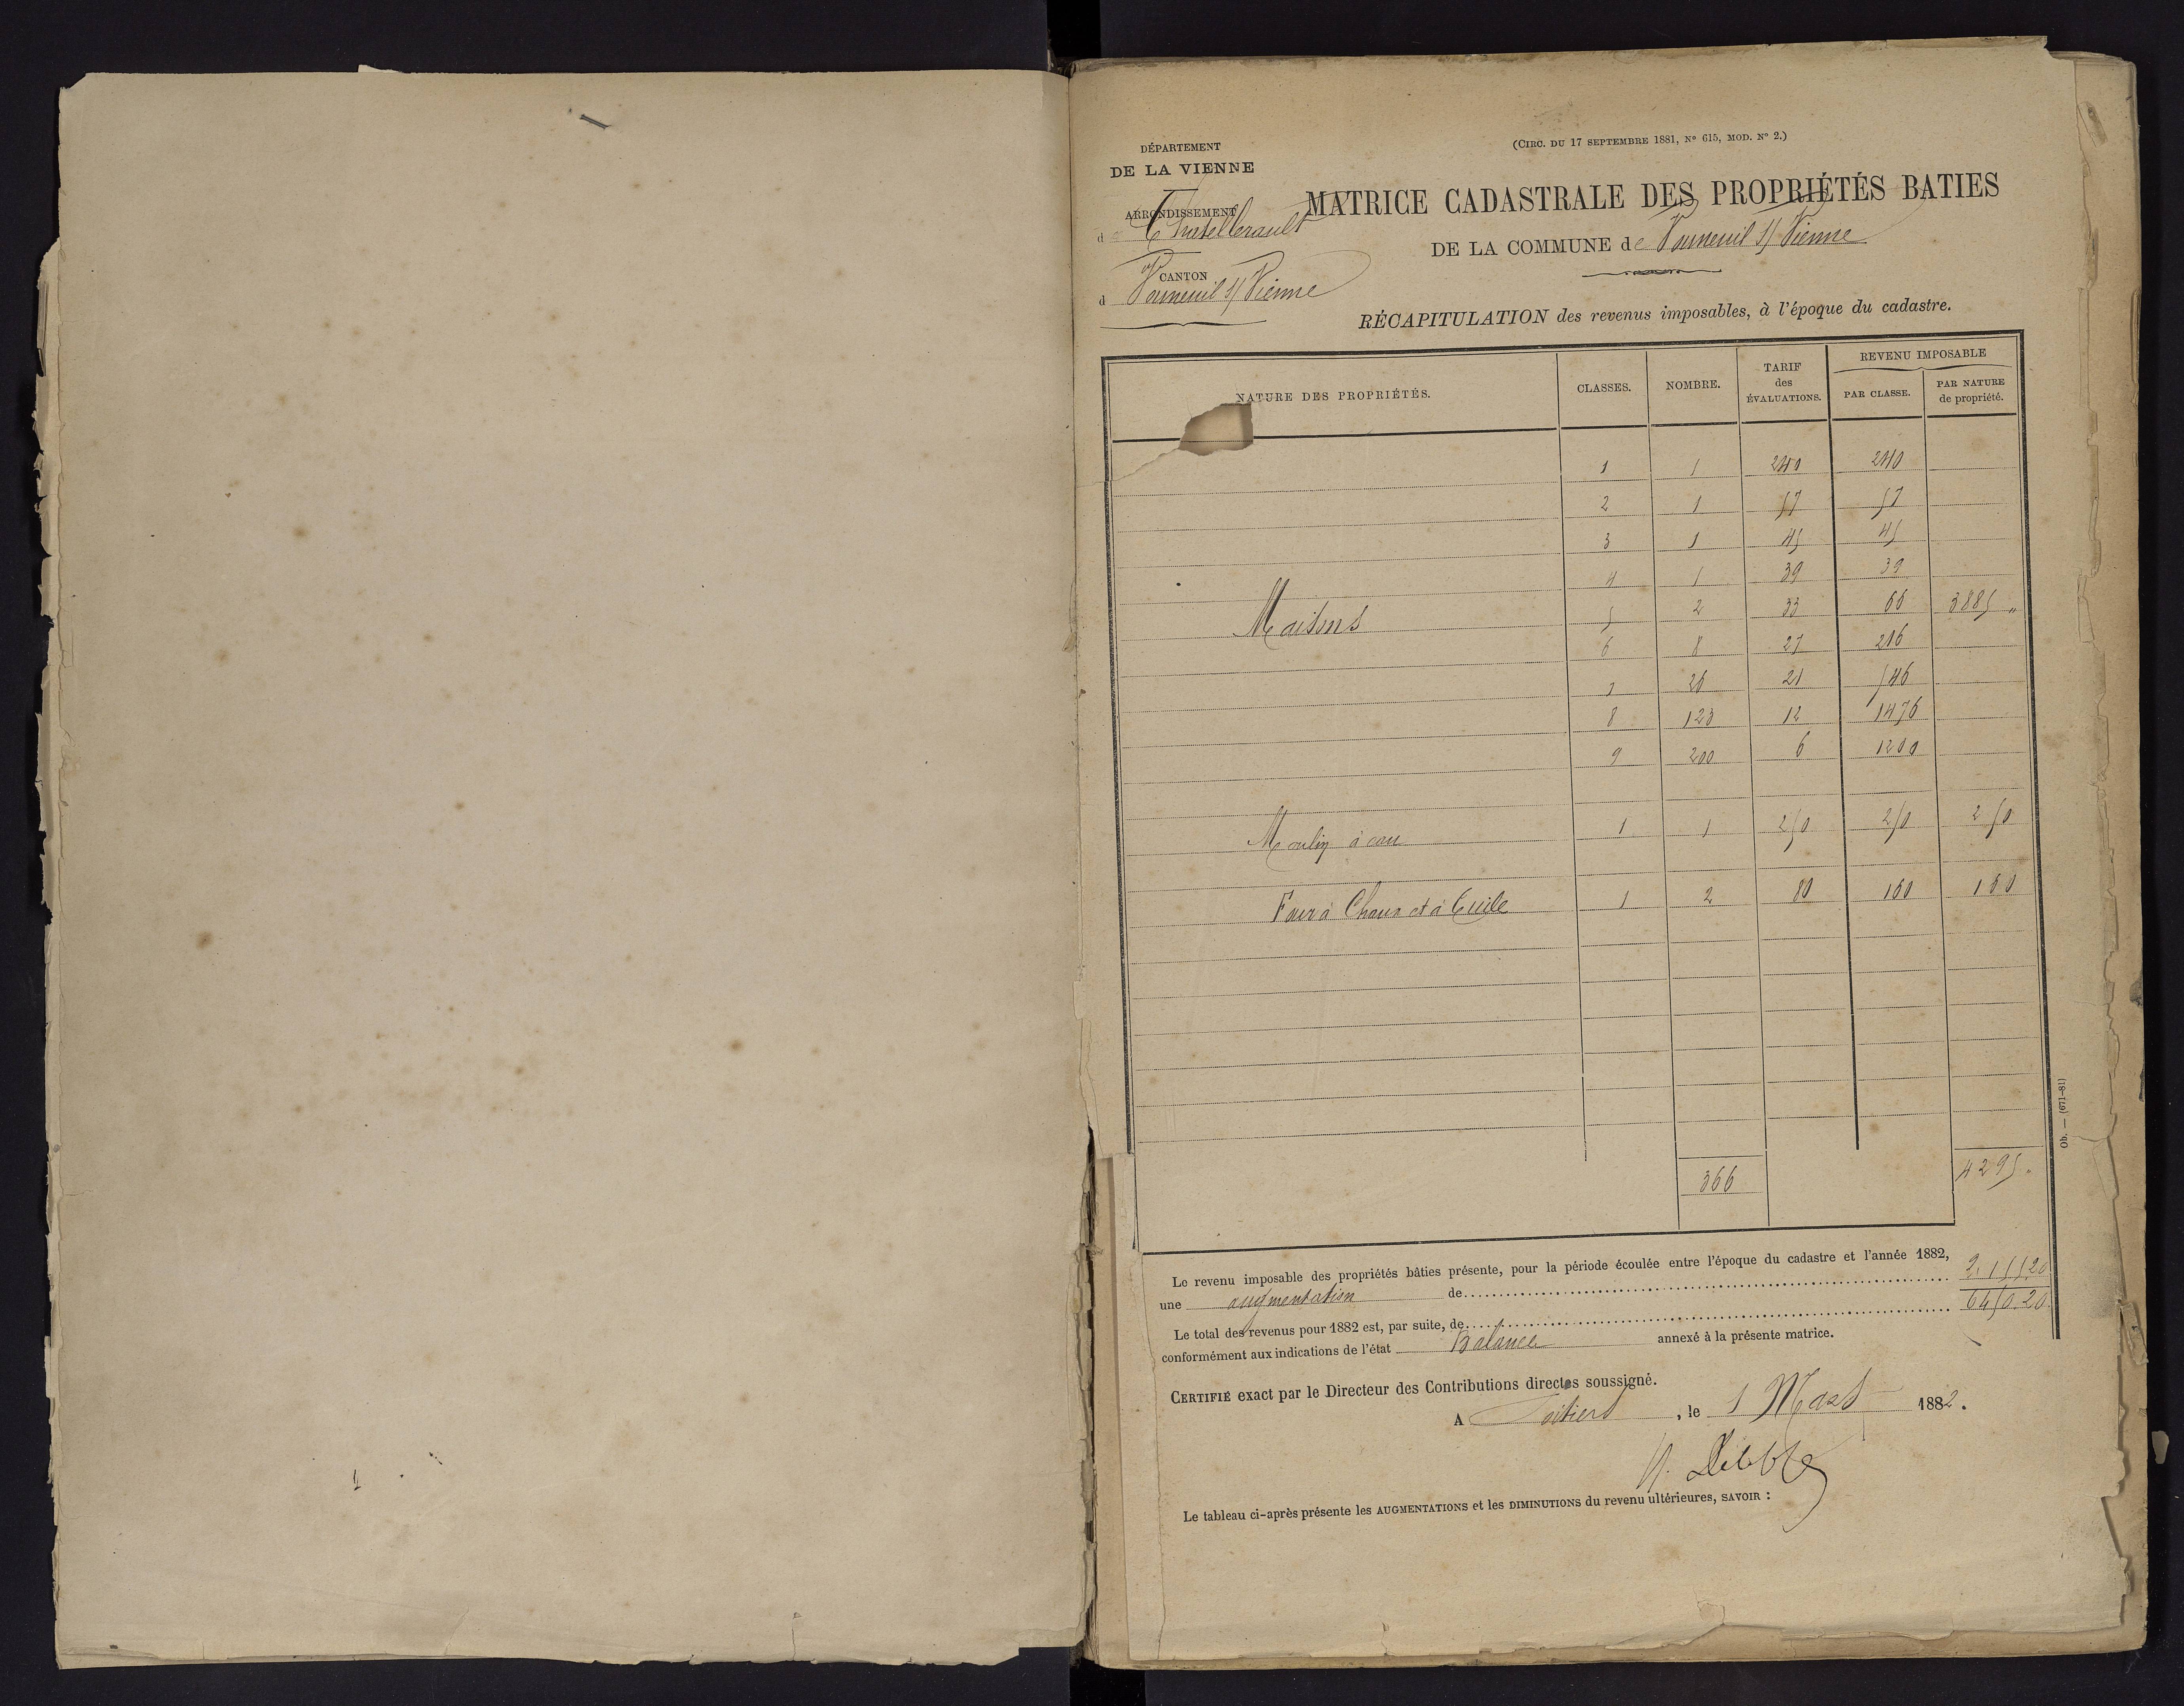 DÉPARTEMENT
DE LA VIENNE
ARRONDISSEMENT
d Chatellerault
CANTON
d Vouneuil s/ Vienne
(CIRC. DU 17 SEPTEMBRE 1881, Nº 615, MOD. Nº 2.)
MATRICE CADASTRALE DES PROPRIÉTÉS BATIES
DE LA COMMUNE de Vouneuil s/ Vienne
RÉCAPITULATION des revenus imposables, à l'époque du cadastre.
NATURE DES PROPRIÉTÉS. CLASSES. NOMBRE. TARIF des ÉVALUATIONS. REVENU IMPOSABLE PAR CLASSE. PAR NATURE de propriété.
1 1 240 240
2 1 57 57
3 1 45 45
4 1 39 39
Maisons 5 2 33 66 3885 "
6 8 27 216
7 26 21 546
8 123 12 1476
9 200 6 1200
Moulin à eau 1 1 250 250 250
Four à Chaux et à Tuile 1 2 80 160 160
366 4295 "
Le revenu imposable des propriétés bâties présente, pour la période écoulée entre l'époque du cadastre et l'année 1882,
une augmentation de 2.155.20
Le total des revenus pour 1882 est, par suite, de 6450.20
conformément aux indications de l'état Balance annexé à la présente matrice.
CERTIFIÉ exact par le Directeur des Contributions directes soussigné.
A Poitiers, le 1 Mars 1882.
Le tableau ci-après présente les AUGMENTATIONS et les DIMINUTIONS du revenu ultérieures, SAVOIR :
Ob. — (671-81)
1